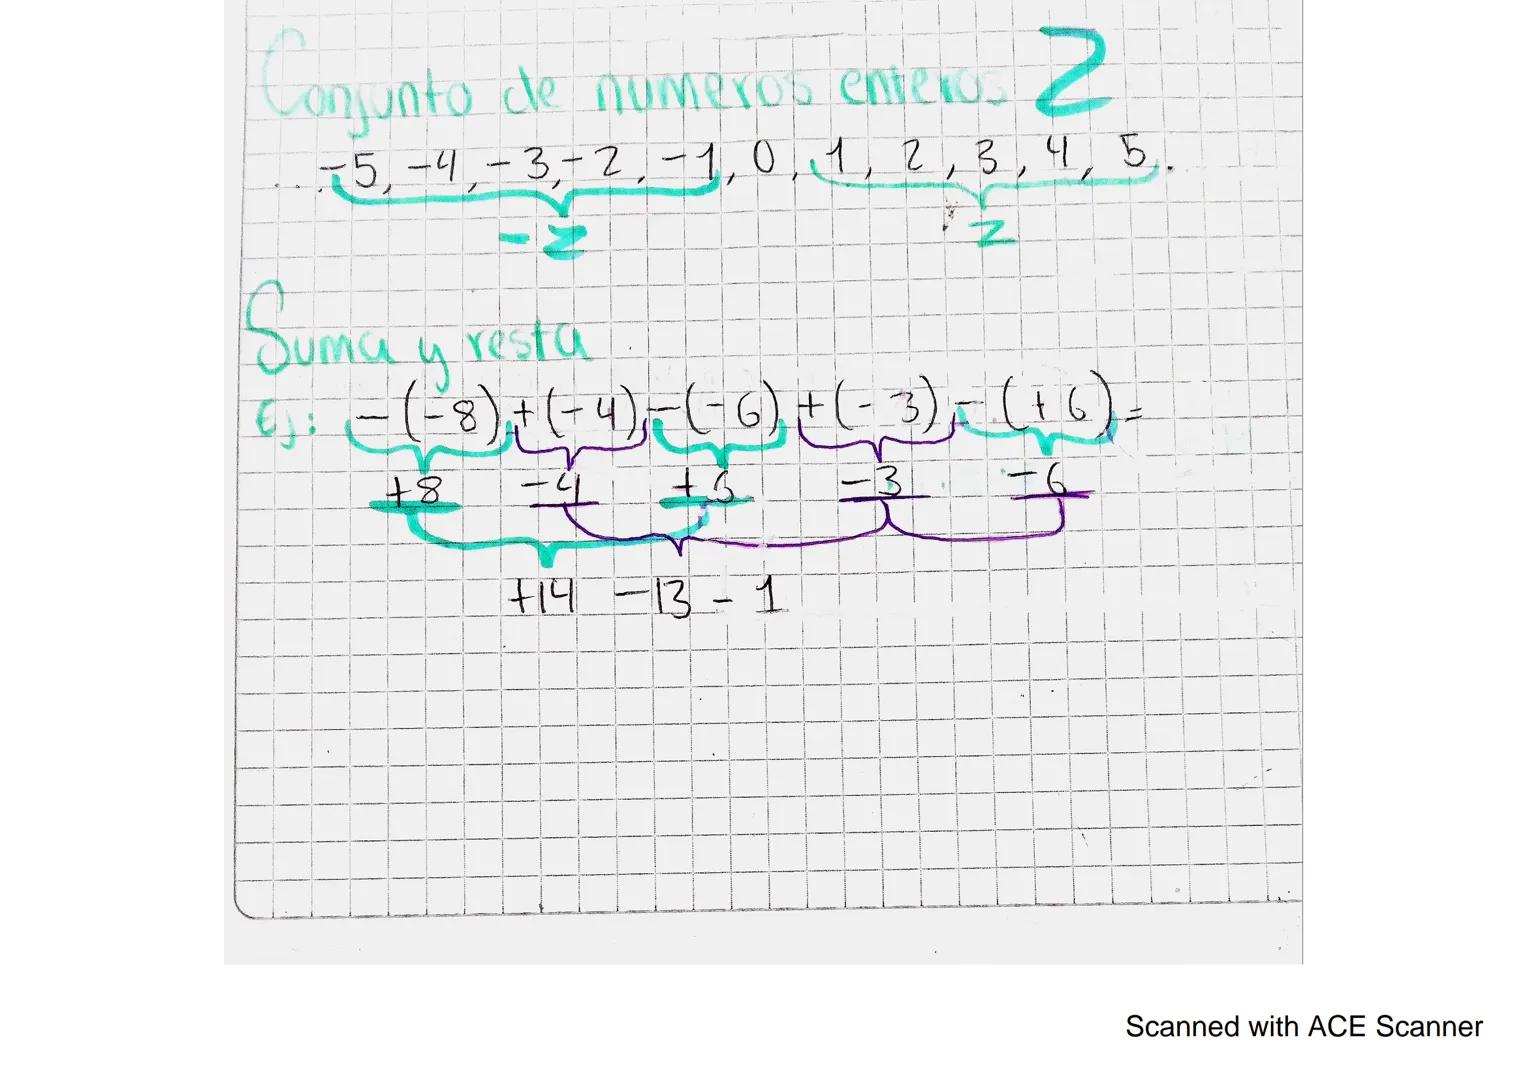 Conjunto de numeros enteros Z
...-5, -4, -3, -2, -1, 0, 1, 2, 3, 4, 5.
-Z Z
Suma y resta
Ej: -(-8)+(-4)-(-6)+(-3)-(+6)=
+8 -4 +6 -3 -6
+14 -13 - 1
Scanned with ACE Scanner